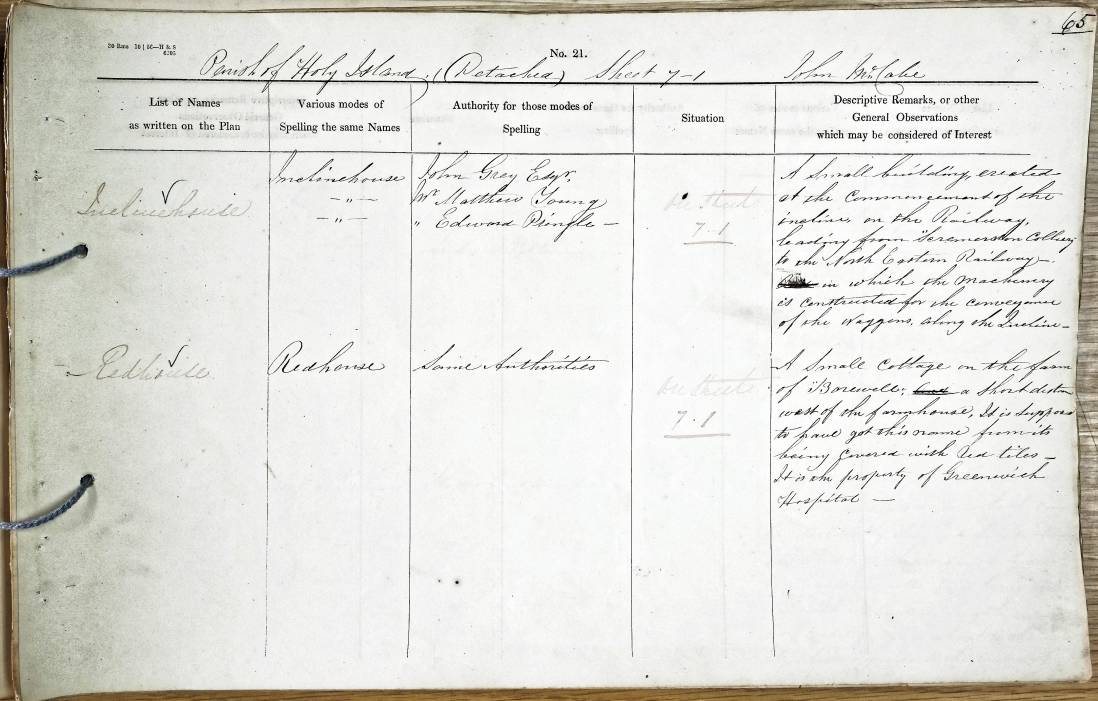 65
20 Rms 10 | 56—H & S
No. 21.
Parish of Holy Island, (Detached) Sheet 7-1 John McCabe
List of Names
as written on the Plan
Various modes of
Spelling the same Names
Authority for those modes of
Spelling
Situation
Descriptive Remarks, or other
General Observations
which may be considered of Interest
Inclinehouse
Inclinehouse
- " -
- " -
John Grey Esqr.
Mr. Matthew Young
" Edward Pringle -
7.1
A Small building, erected
at the Commencement of the
incline, on the Railway,
leading from Scremerston Colliery
to the North Eastern Railway -
in which the Machinery
is constructed for the conveyance
of the Waggons, along the Incline -
Redhouse
Redhouse
Same Authorities
7.1
A Small Cottage on the farm
of Borewell; a Short distan
west of the farmhouse, It is Suppos
to have got this name from its
being Covered with Red tiles -
It is the property of Greenwich
Hospital -